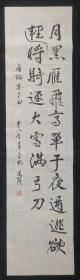 月黑雁飛高單于夜遁逃欲
輕將騎逐大雪滿弓刀
唐詩塞下曲